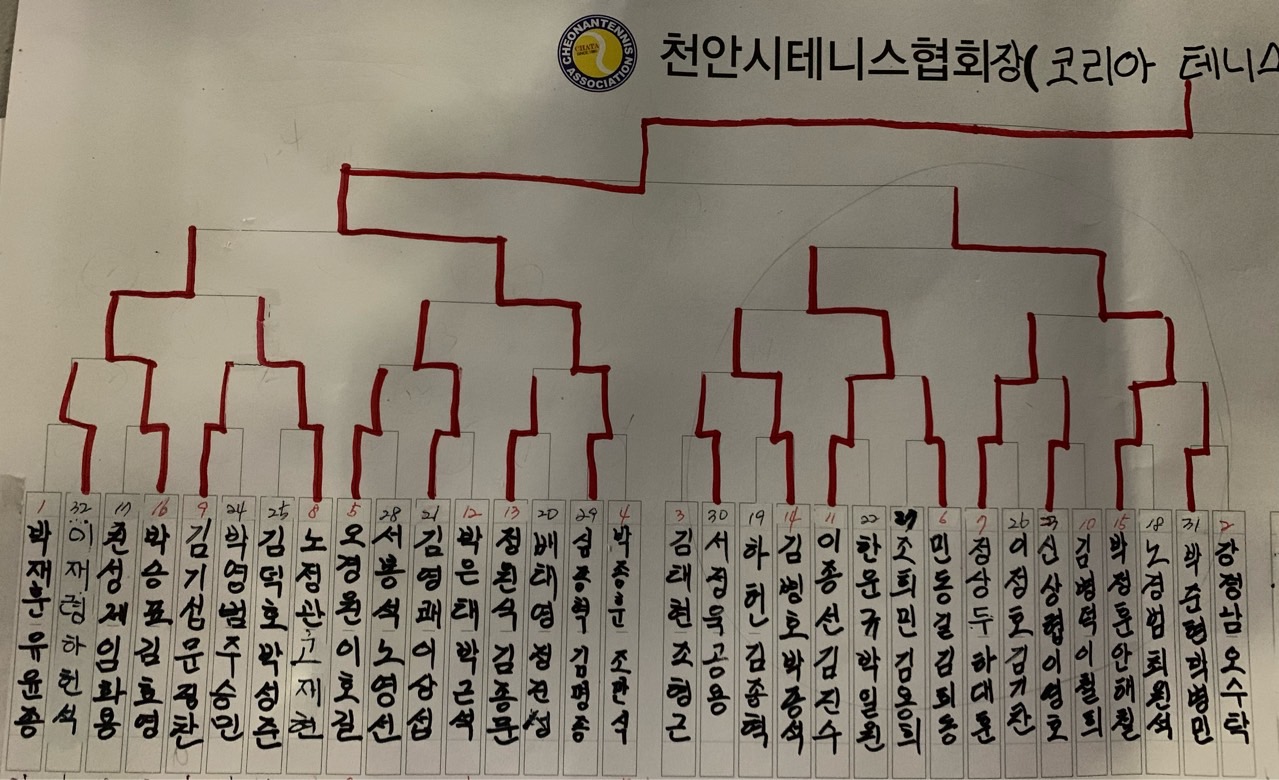 CHEONANTENNIS
CHATA
ASSOCIATION
천안시테니스협회장( 코리아 테니스
1 박재훈 유윤종
32 이재형 하헌석
17 성제 임화용
16 박승표 김효영
9 김기섭 문광찬
24 박영범 주승민
25 김덕호 박성준
8 노정관 고재현
5 오경원 이호길
28 서봉석 노영선
21 김영쾌 이상섭
12 박은태 박근석
13 정원식 김종문
20 배태영 정진성
29 심종혁 김명종
4 박종훈 조한석
3 김태현 조형근
30 서정욱 공용
19 하헌 김종혁
14 김병호 박종석
11 이종선 김진수
22 한운규 박일원
27 조희민 김용희
6 민동걸 김퇴동
7 정상두 하대훈
26 이정호 김기찬
23 신상협 이영호
10 김병덕 이철희
15 박정훈 안해철
18 노경범 최원석
31 박준현 박병민
2 강정남 오수탁